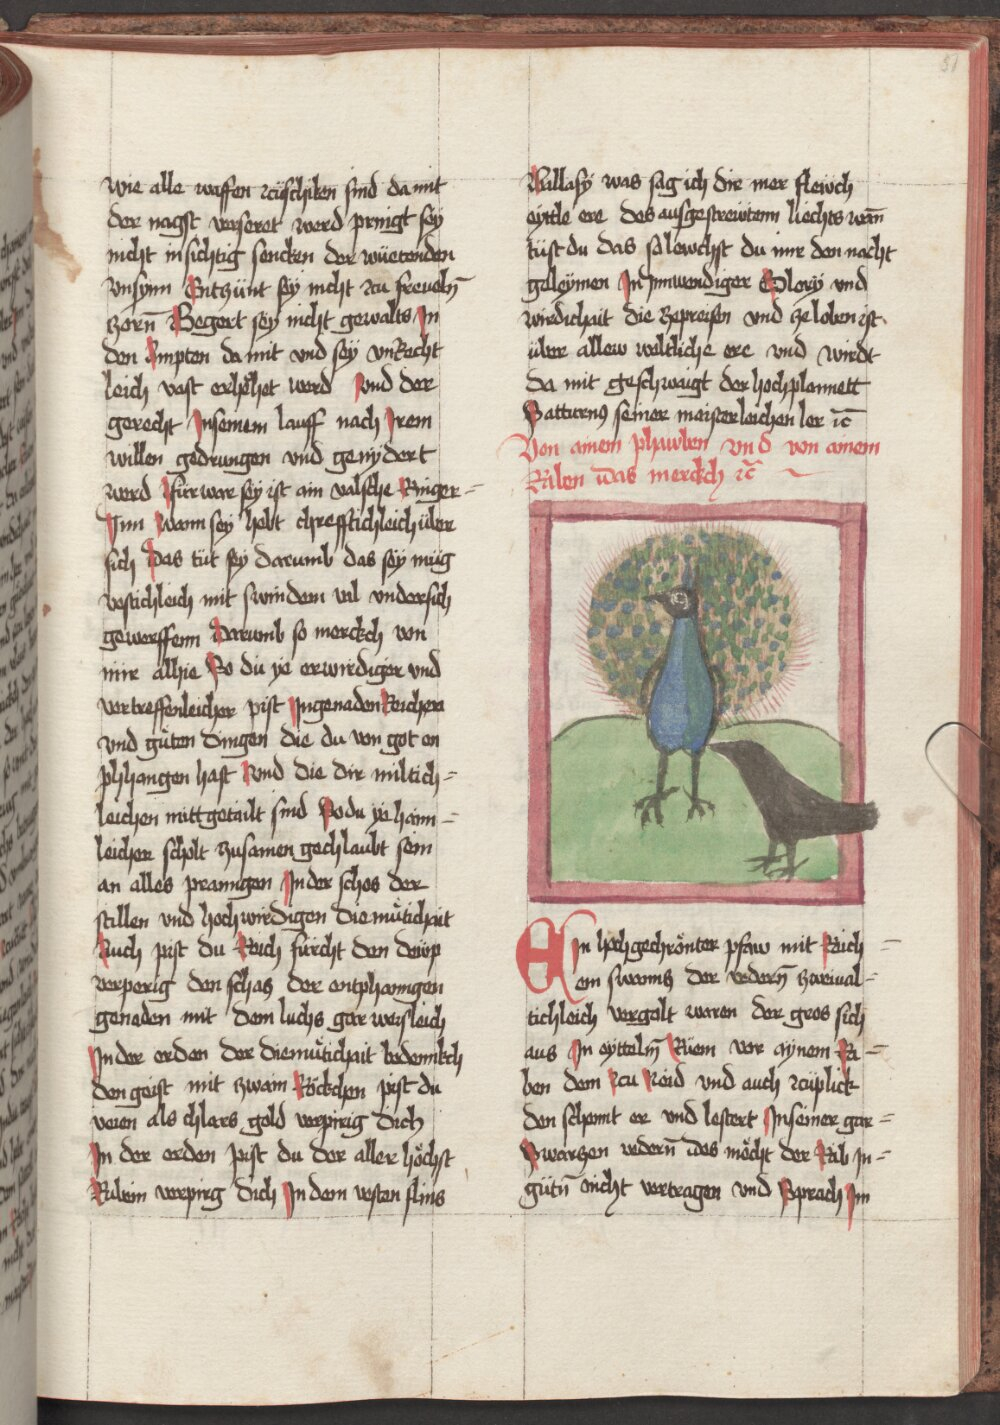 51
wie alle waffen zuschiken sind da mit
der nagst verseret werd prnigt sey
nicht in sichtig sencken der wüetenden
vnsynn Entzünt sey nicht zu freueln̄
zorn̄ Begert sey nicht gewalts In
den Ampten da mit vnd sey vnRecht
leich vast erhöhet werd vnd der
gerecht Inseinem lauff nach Irem
willen gedrungen vnd genydert
werd Fürwar sey ist ain valsche Ringer=
Inn Wann sey hebt chrefftichleich über
sich Das tüt sey darumb das sey müg
vestichleich mit swindem val vndersich
gewerffenn Darumb so merckch von
mir alhie So du ye erwirdiger vnd
vortreffenleicher pist Ingenaden Reichen
vnd güten dingen die du von got en
phhangen hast Vnd die dir miltich=
leichen mittgetailt sind So du ye haim=
leicher scholt zusamen gechlaubt sein
an alles pranngen In der schos der
stillen vnd hochwirdigen diemütichait
Auch pist du Reich fürcht den dewp
verperig den schas der entphanngen
genaden mit dem luchs gar weisleich
In der erden der diemütichait bedennkch
den geist mit zwain Röckchen pist du
veien als chlars gold verpirig dich
In der erden pist du der aller höchst
Rubein verpirg dich In dem vesten flins
Pallasy was sag ich dir mer flewch
eyttle ere des ausgestrewtenn liechts wan̄
tüst du das so lewchst du mir den nacht
geleymen In Innwendiger Glory vnd
wirdichait die zepreisen vnd ze loben ist
über allew weltliche ere vnd wirdt
da mit geschwaigt der hochplannett
Satturnus seiner maisterleichen ler ⁊c̄
Von ainem phawben vnd von ainem
Raben das merckch ⁊c̄
EIn hochgechrönter pfaw mit Reich=
em swanns der vedern̄ zweiual=
tichleich vergolt waren der gros sich
aus In eyttelm̄ Rüem vor aynem Ra=
ben dem zu Neid vnd auch zuplick
den schennt er vnd lestert Inseiner gar=
Swarzen vedern̄ des möcht der Rab In=
gütn̄ nicht vertragen vnd Sprach Im